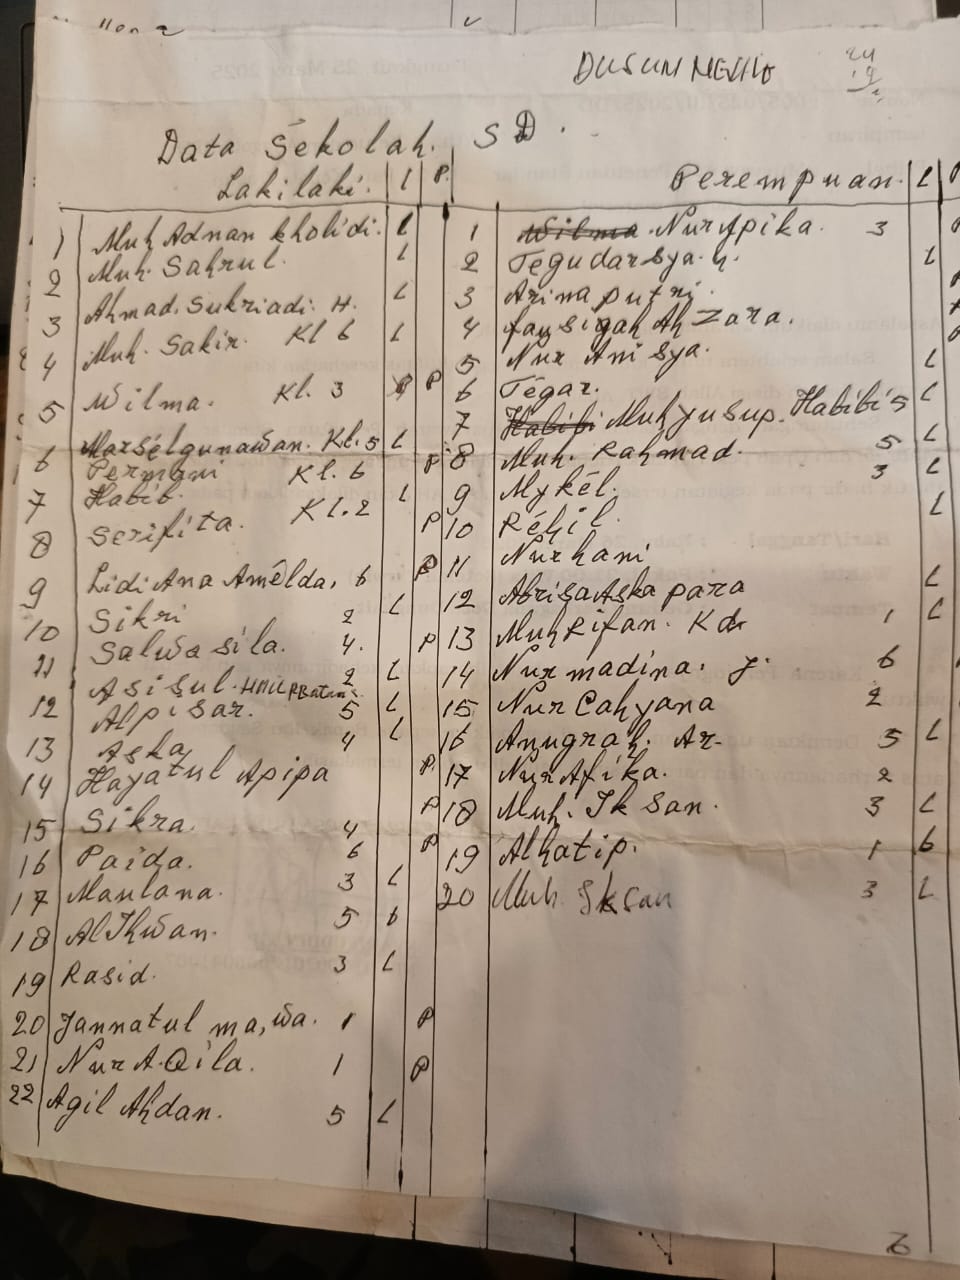 DUSUN
Data Sekolah. SD.
Lakilaki. L P. Perempuan. L
1 Muh Adnan Kholidi. L
2 Muh. Sahrul. L
3 Ahmad. Sukriadi. H. L
4 Muh. Sakir. Kl 6 L
5 Wilma. Kl. 3 P
6 Marselgunawan. Kl. 5 L
Permani Kl. 6 P
7 Habib. Kl. 2 L
8 Serifita. P
9 Lidi Ana Amelda, 6 P
10 Sikri 2 L
11 Salwa sila. 4. P
12 Asisul. 2 L
Alpisar. 5 L
13 Aska 4 L
14 Hayatul Apipa P
15 Sikra. 4 P
16 Paida. 6 P
17 Maulana. 3 L
18 Al Ikhwan. 5 L
19 Rasid. 3 L
20 Jannatul ma,wa. 1 P
21 Nur A. Qila. 1 P
22 Agil Ahdan. 5 L
1 Wilma Nur Apika. 3
2 Tegudarsya. L
3 Arina putri.
4 Zara.
5 Nur Anisya.
6 Tegar. L
7 Habibi Muh yusup. Habibi 5 L
8 Muh. Rahmad. 5 L
9 Mykel. 3 L
10 Rehil. L
11 Nurhani
12 Abrisa Aska para L
13 Muh Rifan. 1 L
14 Nur madina. J. 6
15 Nur Cahyana 2
16 Anugrah. Ar. 5 L
17 Nur Afika. 2
18 Muh. Iksan. 3 L
19 Alhatip. 1 L
20 Muh Iksan 3 L